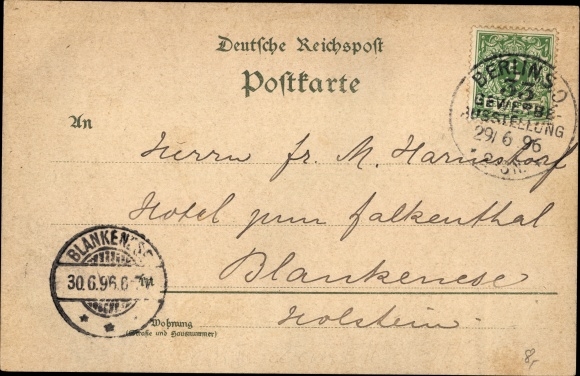 Deutsche Reichspost
Postkarte
BERLIN S.O
33
GEWERBE-
AUSSTELLUNG
29/6 96
An
Herrn fr. M. Harmstorf
Hotel zum Falkenthal
Blankenese
Holstein.
BLANKENESE
30.6.96.6-
Wohnung
(Straße und Hausnummer)
8,